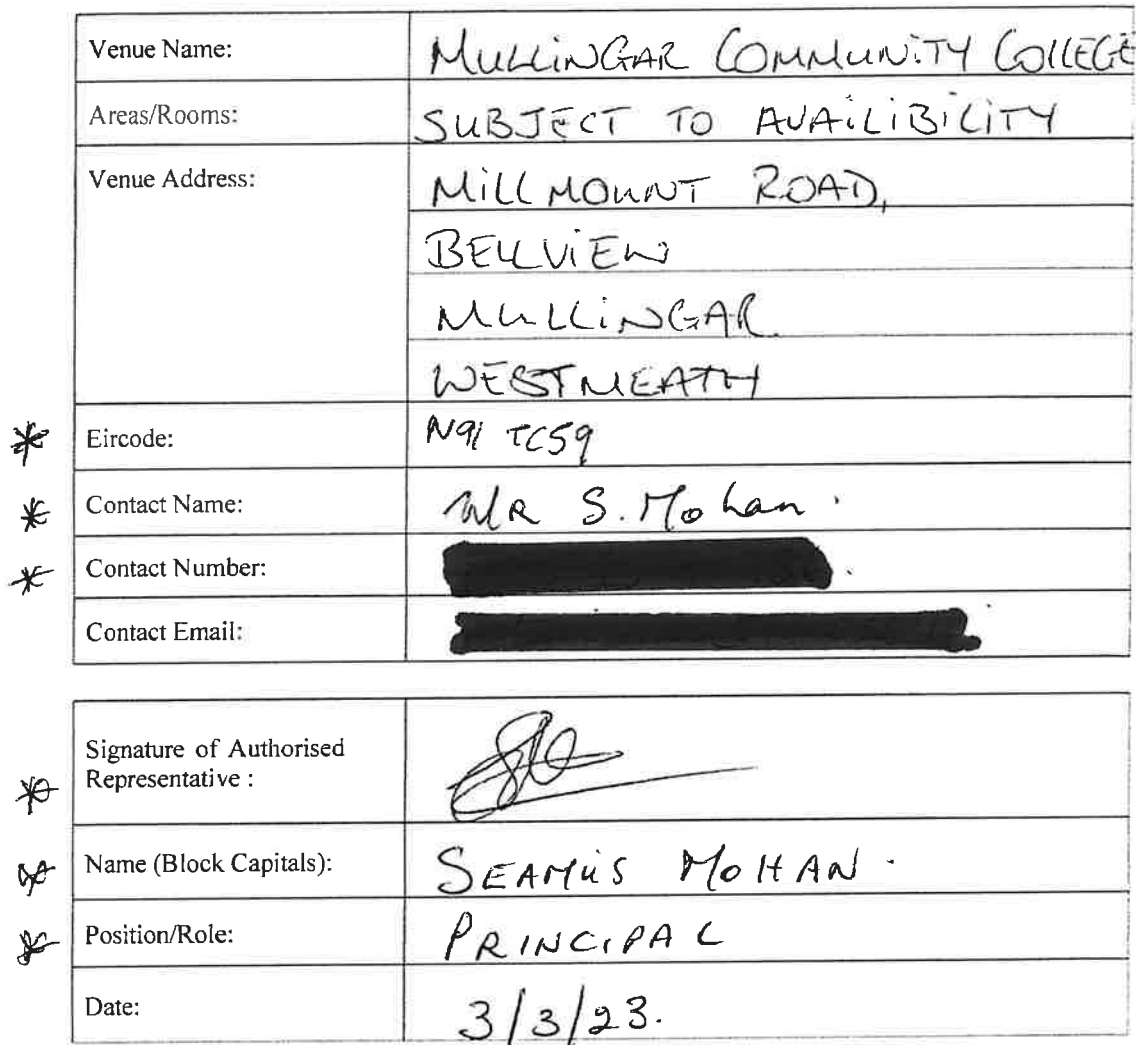 Venue Name: MULLINGAR COMMUNITY COLLEGE
Areas/Rooms: SUBJECT TO AVAILIBILITY
Venue Address: MILLMOUNT ROAD,
BELLVIEW
MULLINGAR
WESTMEATH
* Eircode: N91 TC59
* Contact Name: MR S. Mohan.
* Contact Number:
Contact Email:
Signature of Authorised
* Representative :
* Name (Block Capitals): SEAMUS MOHAN.
* Position/Role: PRINCIPAL
Date: 3/3/23.